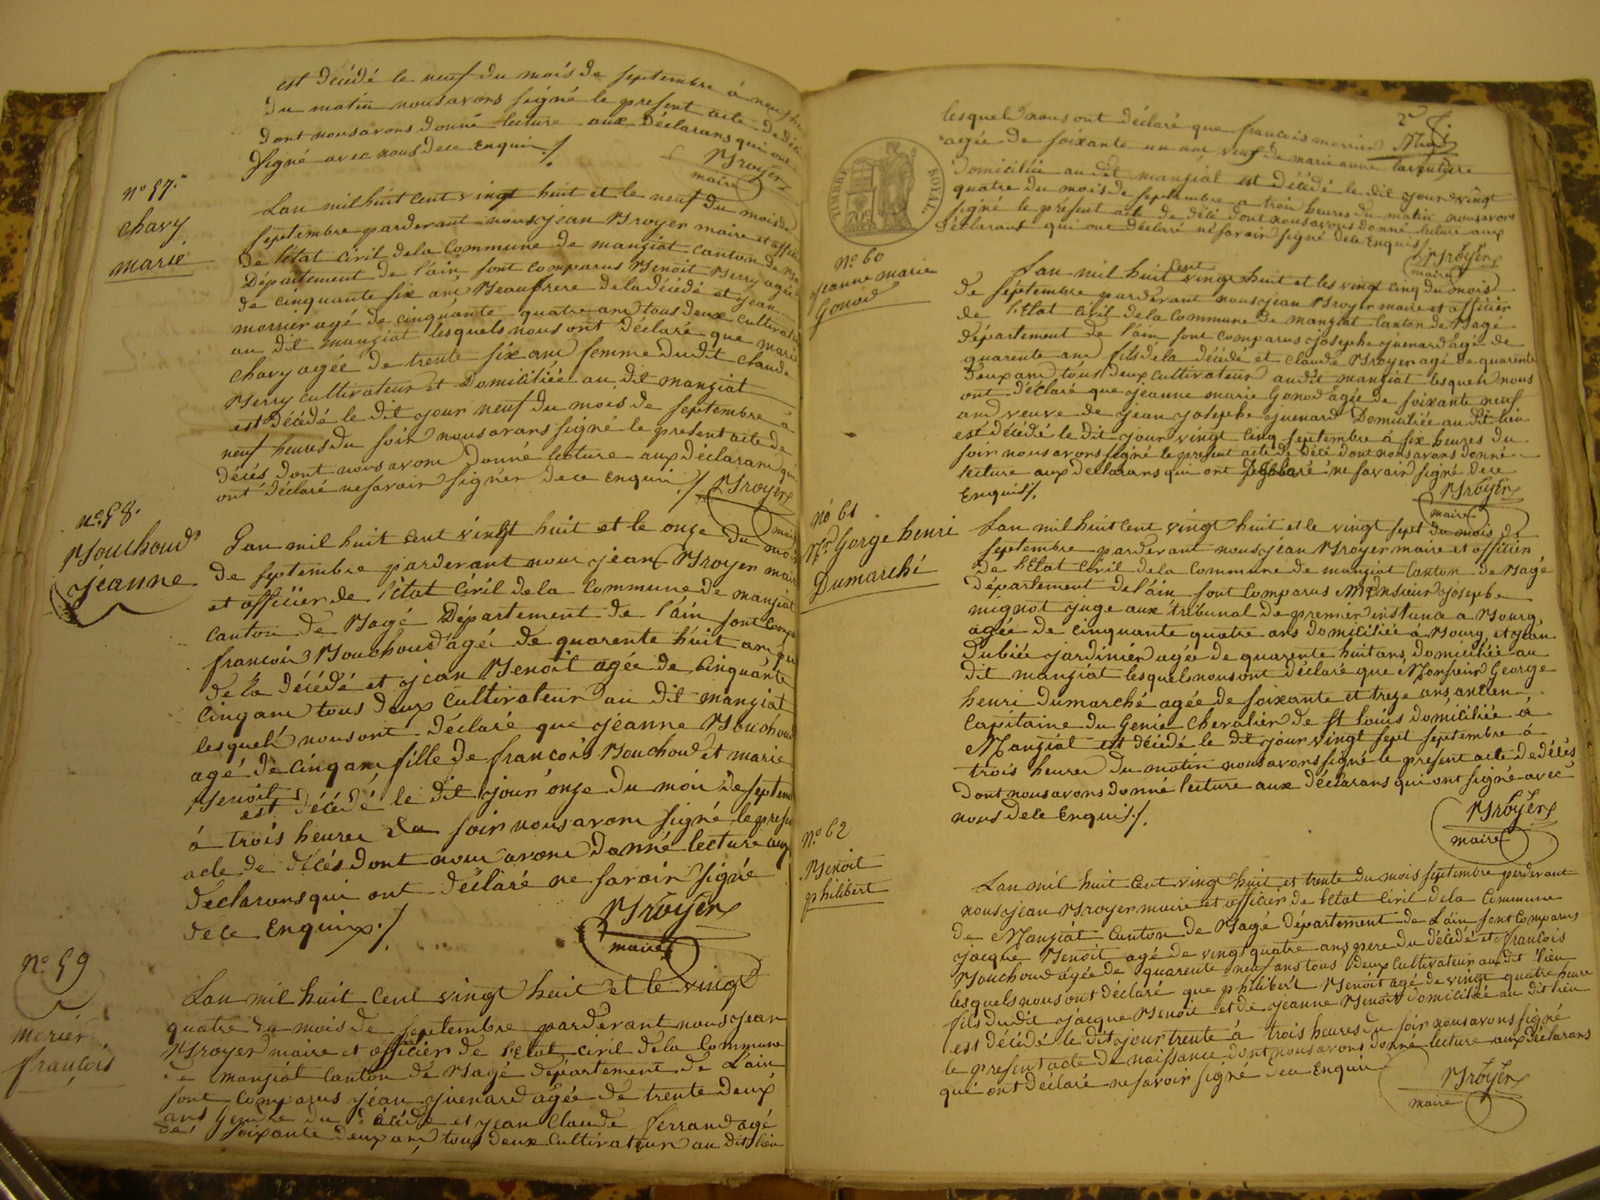 est décédé le neuf du mois de septembre à neuf heures
du matin nous avons signé le present acte de décé
dont nous avons donné lecture aux déclarans qui ont
signé avec nous de ce Enquin /.
Broyer
maire
n.o 57.
chavy
marie
Lan mil huit cent vingt huit et le neuf du mois de
septembre parderant nous jean Broyer maire et officier
de l'état civil dela commune de manziat canton de
Département de l'ain sont comparus Benoit Berry agée
de cinquante six ans Beaufrere dela décédé et jean
morrier agé de cinquante quatre ans tous deux cultivateurs
au dit manziat lesquels nous ont déclaré que marie
chavy agée de trente six ans femme du dit claude
Berry cultivateur et Domiciliée au dit manziat
est décédé le dit jour neuf du mois de septembre à
neuf heures du soir nous avons signé le present acte de
décés dont nous avons donné lecture aux déclarans qui
ont déclaré ne savoir signér de ce enquin /.
Broyer
maire
n.o 58.
Bouchoud
jeanne
Lan mil huit cent vingt huit et le onze du mois
de septembre parderant nous jean Broyer maire
et officier de l'état civil dela commune de manziat
canton de Bagé Département de l'ain sont comparus
francois Bouchoud agé de quarente huit ans
de la décédé et jean Benoit agée de cinquante
cinq ans tous deux cultivateur au dit manziat
lesquels nous ont déclaré que jeanne Bouchoud
agé de cinq ans fille de francois Bouchoud et marie
Benoit
est décédé le dit jour onze du mois de septembre
à trois heures du soir nous avons signé le present
acte de décés dont nous avons donné lecture aux
déclarans qui ont déclaré ne savoir signé
de ce Enquin /.
Broyer
maire
n.o 59
merier
francois
Lan mil huit cent vingt huit et le vingt
quatre du mois de septembre parderant nous jean
Broyer maire et officier de l'état civil dela commune
de manziat canton de Bagé département de L'ain
sont comparus jean guenard agée de trente deux
ans gendre du décédé et jean claude ferrand agé
de soixante deux ans tous deux cultivateur au dit lieu
2
lesquel nous ont déclaré que francois morrier
agée de soixante un ans veuf de marie anne
Domiciliée au dit manziat est décédé le dit jour vingt
quatre du mois de septembre à trois heures du matin nous avons
signé le present acte de décé dont nous avons donné lecture aux
déclarans qui ont déclaré ne savoir signé dece Enquis /.
Broyer
maire
TIMBRE ROYAL
n.o 60
jeanne marie
Gonod
Lan mil huit cent vingt huit et les vingt cinq du mois
de septembre parderant nous jean Broyer maire et officier
de l'Etat civil dela commune de manziat canton de Bagé
département de l'ain sont comparus josephe guenard agé de
quarente ans fils dela décédé et claude Broyer agé de quarente
deux ans tous deux cultivateur au dit manziat lesquels nous
ont déclaré que jeanne marie Gonod agée de soixante neuf
ans veuve de jean josephe guenard Domiciliée au dit lieu
est décédé le dit jour vingt cinq septembre à six heures du
soir nous avons signé le present acte de décé dont nous avons donné
lecture aux déclarans qui ont déclaré ne savoir signé dece
Enquis /.
Broyer
maire
n.o 61
M.r Gorge henri
Dumarché
Lan mil huit cent vingt huit et le vingt sept du mois de
septembre parderant nous jean Broyer maire et officier
de l'Etat civil dela commune de manziat canton de Bagé
département de l'ain sont comparus Monsieur josephe
mignot juge aux tribunal de premier instance a Bourg,
agée de cinquante quatre ans domiciliée a Bourg, et jean
Dubiée jardinier agée de quarente huit ans, domiciliée au
dit manziat lesquels nous ont déclaré que Monsieur George
henri dumarché agée de soixante et treze ans, ancien
capitaine du Genie chevalier de St Louis domiciliée à
Manziat est décédé le dit jour vingt sept septembre à
trois heures du matin nous avons signé le present acte de décés
dont nous avons donne lecture aux déclarans qui ont signé avec
nous dece Enquis /.
Broyer
maire
n.o 62
Benoit
philibert
Lan mil huit cent vingt huit et trente du mois septembre parderant
nous jean Broyer maire et officier de l'Etat civil dela commune
de Manziat canton de Bagé département de L'ain sont comparus
jacque Benoit agé de vingt quatre ans pere du décédé et francois
Bouchoud agée de quarente neuf ans tous deux cultivateur au dit lieu
lesquels nous ont déclaré que philibert Benoit agé de vingt quatre heure
fils du dit jacque Benoit et de jeanne Benoit domiciliée au dit lieu
est décédé le dit jour trente à trois heures du soir nous avons signé
le present acte de naissance dont nous avons donné lecture aux déclarans
qui ont déclaré ne savoir signé dece Enquis
Broyer
maire